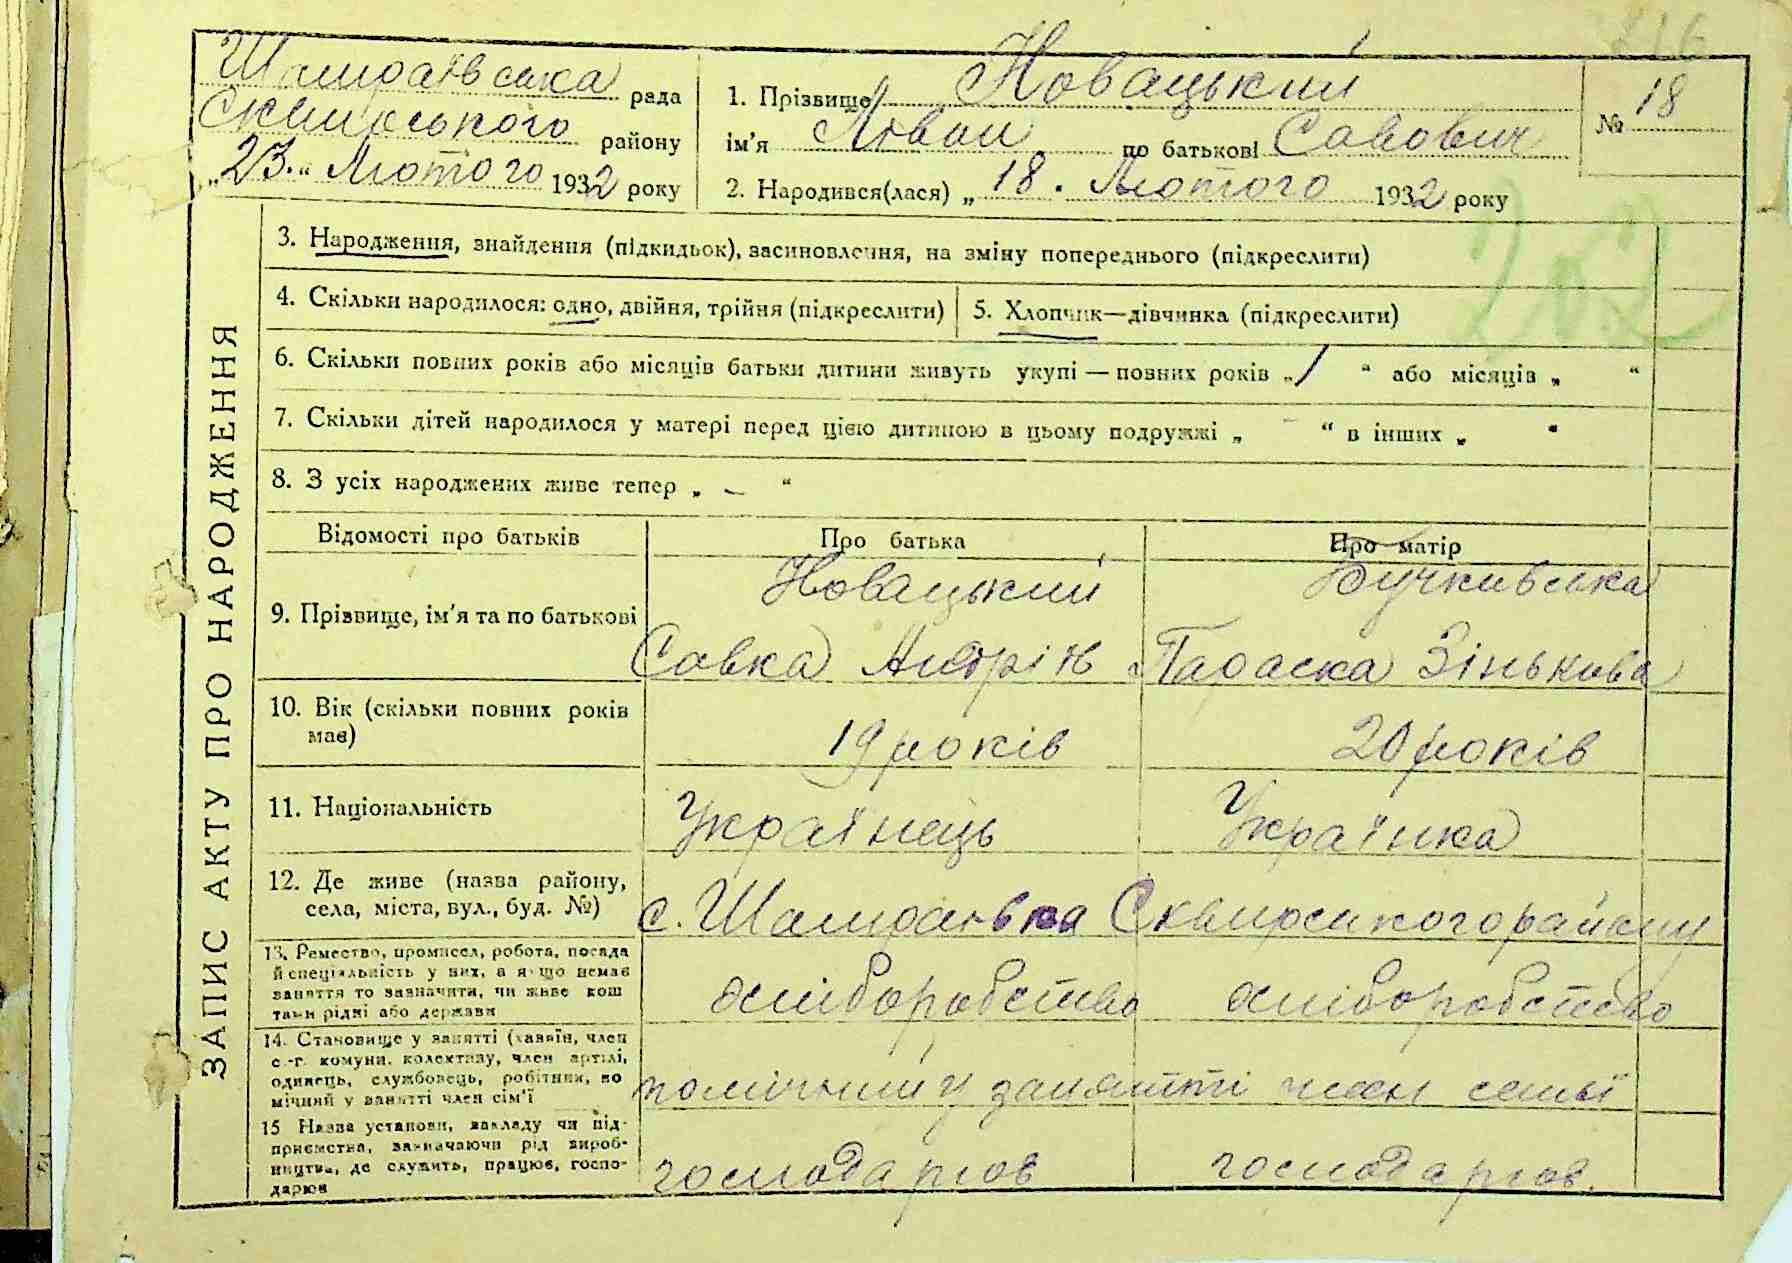 Шамраївська рада
Сквирського району
„23.“ Лютого 1932 року
1. Прізвище Новацький
ім'я по батькові Савович
2. Народився(лася) „18. Лютого 1932 року
№ 18
116
ЗАПИС АКТУ ПРО НАРОДЖЕННЯ
3. Народження, знайдення (підкидьок), засиновлення, на зміну попереднього (підкреслити)
4. Скільки народилося: одно, двійня, трійня (підкреслити)
5. Хлопчик—дівчинка (підкреслити)
6. Скільки повних років або місяців батьки дитини живуть укупі — повних років „1“ або місяців „ “
7. Скільки дітей народилося у матері перед цією дитиною в цьому подружжі „ – “ в інших „ “
8. З усіх народжених живе тепер „ – “
Відомості про батьків
Про батька
Про матір
9. Прізвище, ім'я та по батькові
Новацький
Савка Андрів
Бучківська
Параска Зінькова
10. Вік (скільки повних років
має)
19 років
20 років
11. Національність
Українець
Українка
12. Де живе (назва району,
села, міста, вул., буд. №)
с. Шамраївка Сквирського району
13. Ремество, промисел, робота, посада
й спеціяльність у них, а якщо немає
заняття то зазначити, чи живе кош
тами рідні або держави
хліборобство
хліборобство
14. Становище у занятті (хазяїн, член
с.-г. комуни, колективу, член артілі,
одинець, службовець, робітник, по
мічний у занятті член сім'ї
помічний у занятті член семьї
15 Назва установи, закладу чи під-
приємства, зазначаючи рід вироб-
ництва, де служить, працює, госпо-
дарює
господарює
господарює.